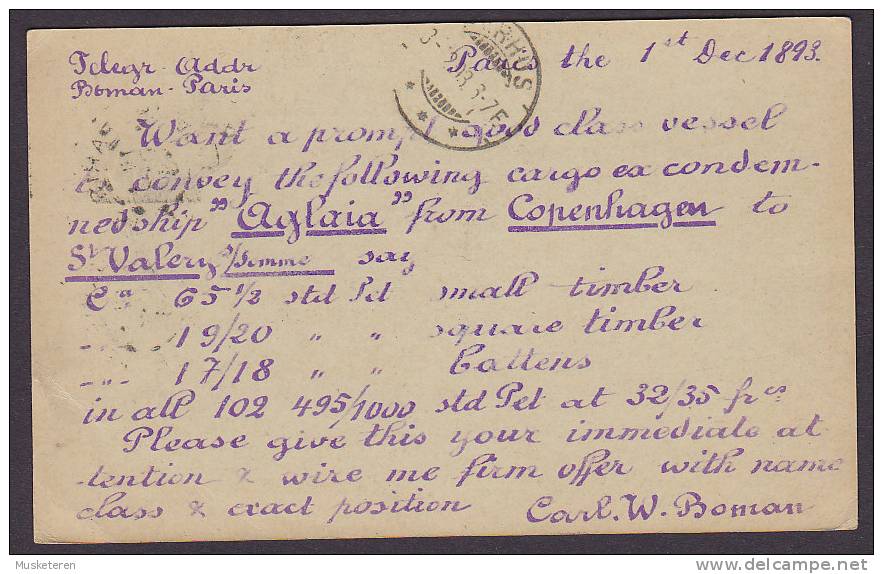 Telegr. Addr
Boman-Paris
Paris the 1st Dec 1893.
Want a prompt good class vessel
to convey the following cargo ex condem-
ned ship "Aglaia" from Copenhagen to
St Valery s/Somme say
Ca 65 1/2 std Pet small timber
„ 19/20 „ „ square timber
„ 17/18 „ „ battens
in all 102 495/1000 std Pet at 32/35 frcs
Please give this your immediate at
tention & wire me firm offer with name
class & exact position Carl. W. Boman
Musketeren
www.delcampe.net